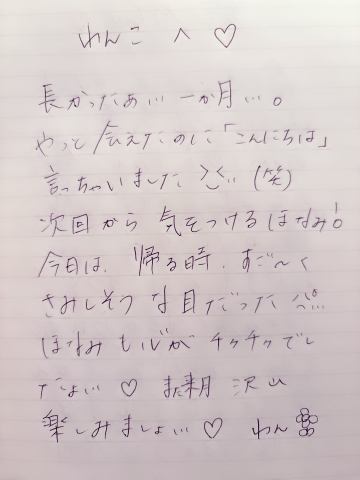 わんこ へ ♡
長かったぁ… 一か月…。
やっと 会えたのに「こんにちは」
言っちゃいました (笑)
次回から 気をつけるほなみ!
今日は、帰る時、すご〜く
さみしそうな目だった
ほなみも心が チクチクでし
たよ… ♡ また来月 沢山
楽しみましょ… ♡ わん